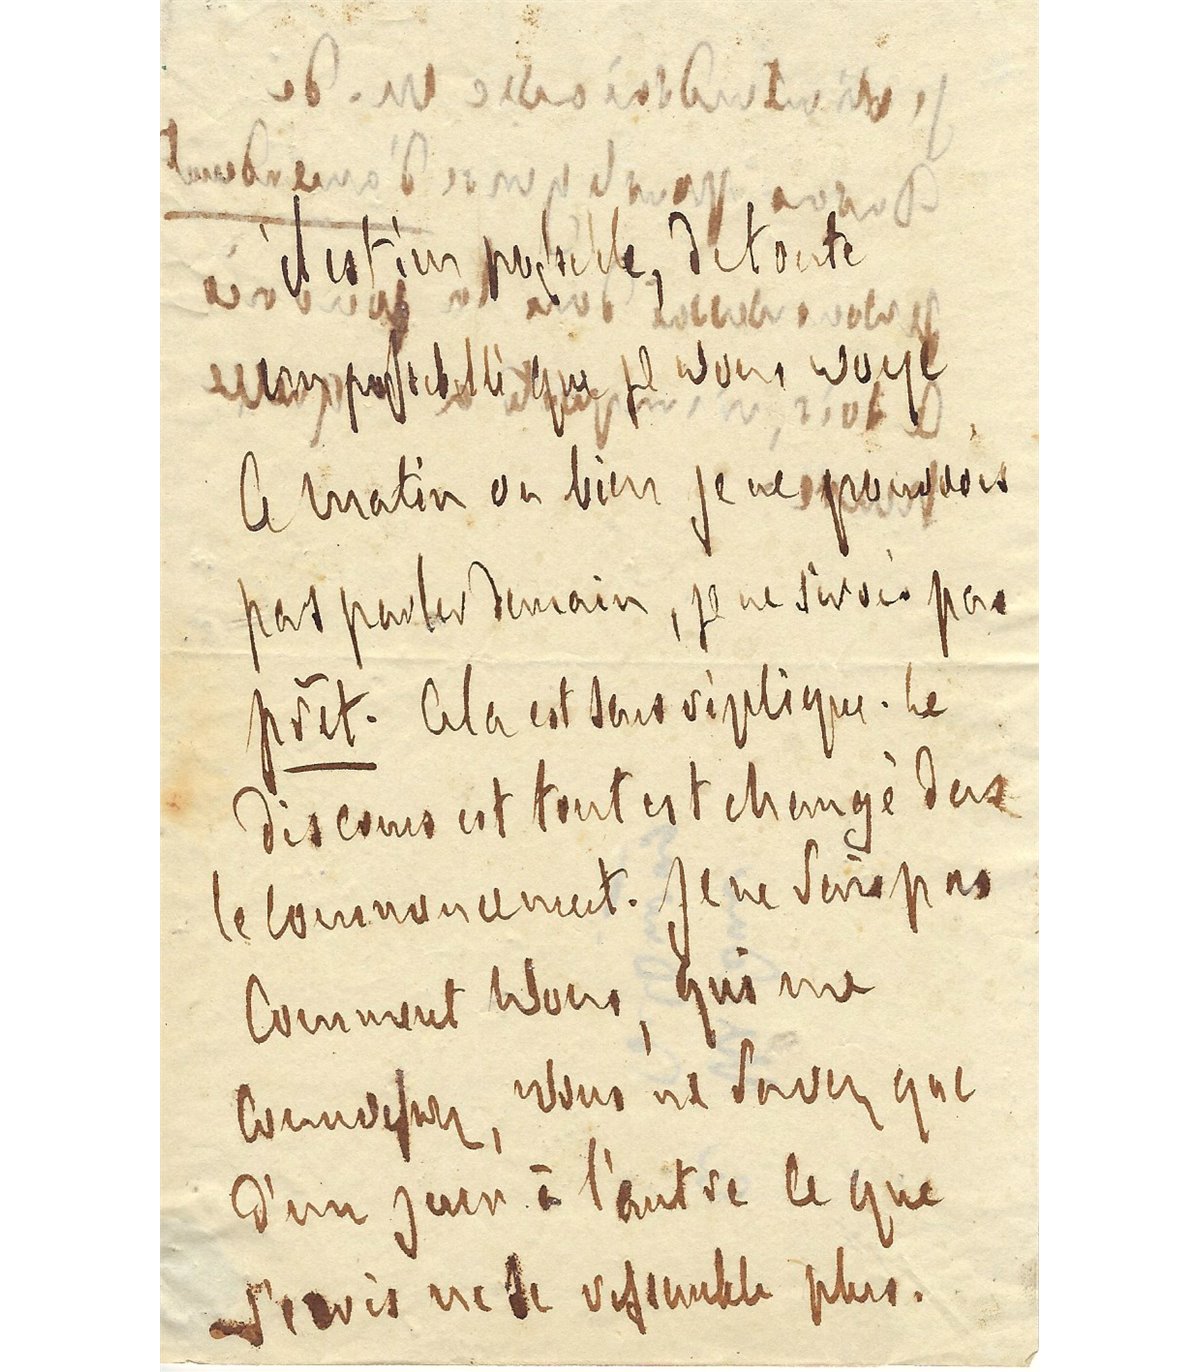 il est im possible, de toute
impossibilité que je vous voye
ce matin ou bien je ne pourrois
pas parler demain, je ne serois pas
prêt. Cela est sans réplique. Le
discours est tout est changé dans
le commencement. Je ne sais pas
comment vous, qui me
connoissez, vous ne savez que
d'un jour à l'autre ce que
j'écris ne se ressemble plus.